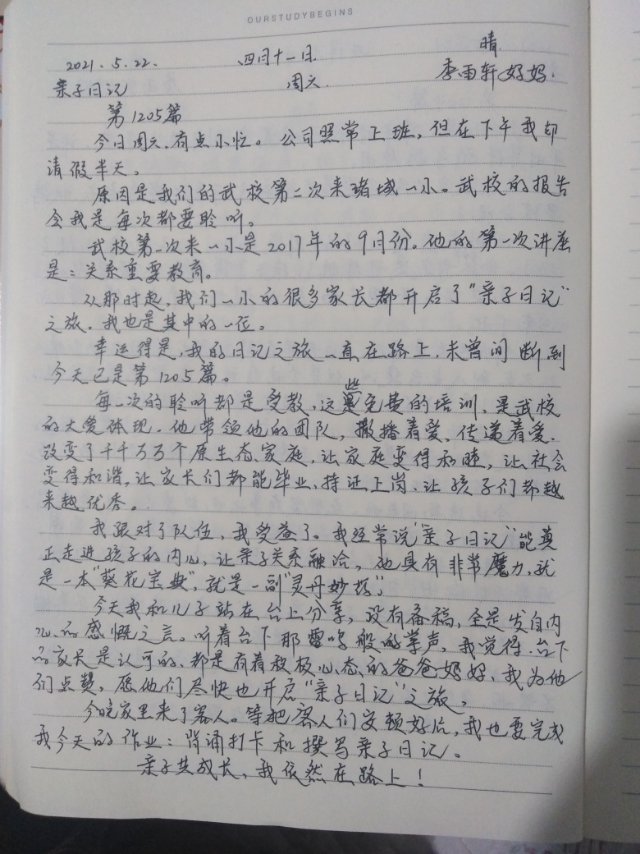 OURSTUDYBEGINS
2021.5.22. 四月十一日 晴
亲子日记 周六 李雨轩妈妈.
第1205篇
今日周六,有点小忙。公司照常上班,但在下午我却
请假半天。
原因是我们的武校第二次来诸城一小。武校的报告
会我是每次都要聆听。
武校第一次来一小是2017年的9月份。他的第一次讲座
是:关系重要教育。
从那时起,我们一小的很多家长都开启了"亲子日记"
之旅,我也是其中的一位。
幸运得是,我的日记之旅一直在路上,未曾间断到
今天已是第1205篇。
每一次的聆听都是受教,这些免费的培训,是武校
的大爱体现。他带领他的团队,撒播着爱、传递着爱.
改变了千千万万个原生态家庭,让家庭变得和睦,让社会
变得和谐,让家长们都能毕业,持证上岗、让孩子们都越
来越优秀。
我跟对了队伍,我受益了。我经常说"亲子日记"能真
正走进孩子的内心,让亲子关系融洽,他具有非常魔力,就
是一本"葵花宝典",就是一副"灵丹妙药"。
今天我和儿子站在台上分享,没有备稿,全是发自内
心的感慨之言。听着台下那雷鸣般的掌声,我觉得,台下
的家长是认可的、都是有着积极心态的爸爸妈妈、我为他
们点赞,愿他们尽快也开启"亲子日记"之旅,
今晚家里来了客人。等把客人们安顿好后,我也要完成
我今天的作业:背诵打卡和撰写亲子日记。
亲子共成长,我依然在路上!